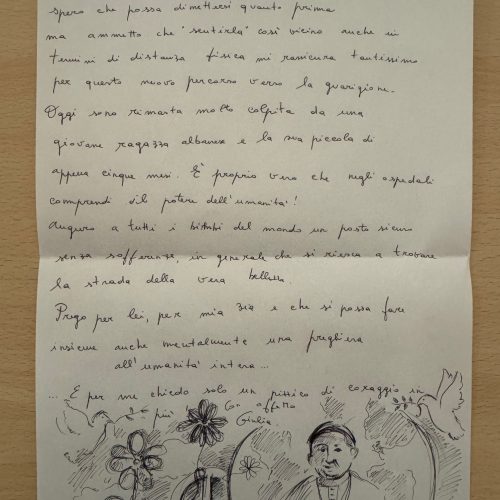 spero che possa dimettersi quanto prima
ma ammetto che "sentirla" così vicino anche in
termini di distanza fisica mi rassicura tantissimo
per questo nuovo percorso verso la guarigione.
Oggi sono rimasta molto colpita da una
giovane ragazza albanese e la sua piccola di
appena cinque mesi. È proprio vero che negli ospedali
comprendi il potere dell'umanità!
Auguro a tutti i bimbi del mondo un posto sicuro
senza sofferenze, in generale che si riesca a trovare
la strada della vera bellezza.
Prego per lei, per mia zia e che si possa fare
insieme anche mentalmente una preghiera
all'umanità intera...
... E per me chiedo solo un pizzico di coraggio in
più
Con affetto
Giulia.